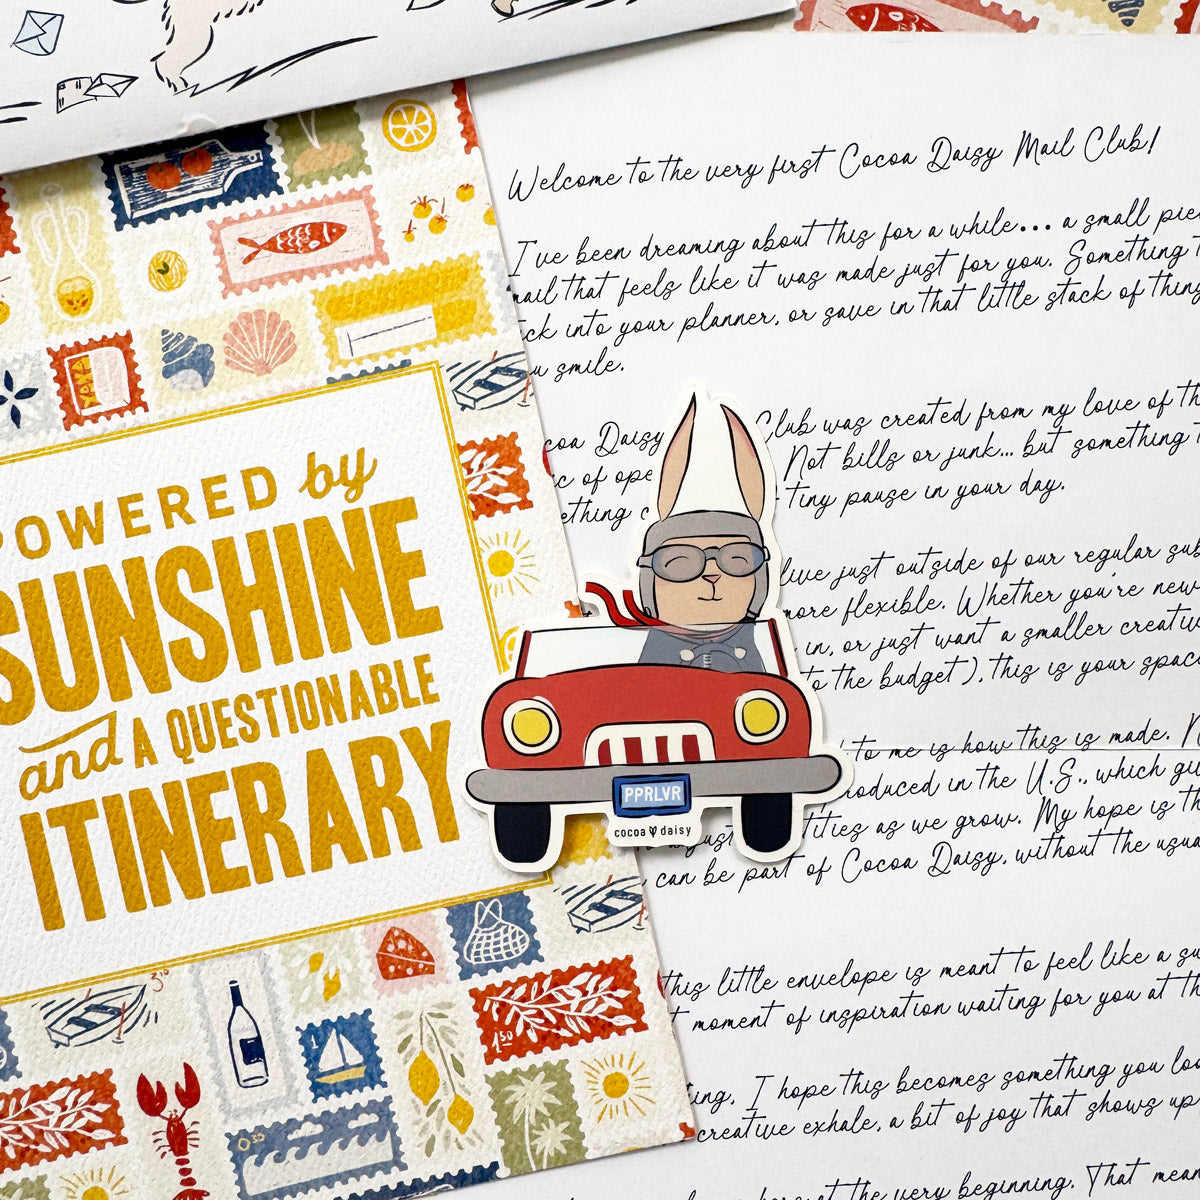 POWERED by
SUNSHINE
and A QUESTIONABLE
ITINERARY
PPRLVR
cocoa daisy
1
1 50
0 50
Welcome to the very first Cocoa Daisy Mail Club!
I've been dreaming about this for a while... a small
mail that feels like it was made just for you. Something
into your planner, or save in that little stack of
smile.
Daisy Club was created from my love of
of Not bills or junk... but something
tiny pause in your day.
live just outside of our regular
more flexible. Whether you're new
in, or just want a smaller creative
to the budget), this is your space
to me is how this is made.
in the U.S., which
as we grow. My hope is
can be part of Cocoa Daisy, without the
this little envelope is meant to feel like a
moment of inspiration waiting for you at
I hope this becomes something you
creative exhale, a bit of joy that shows up
at the very beginning. That